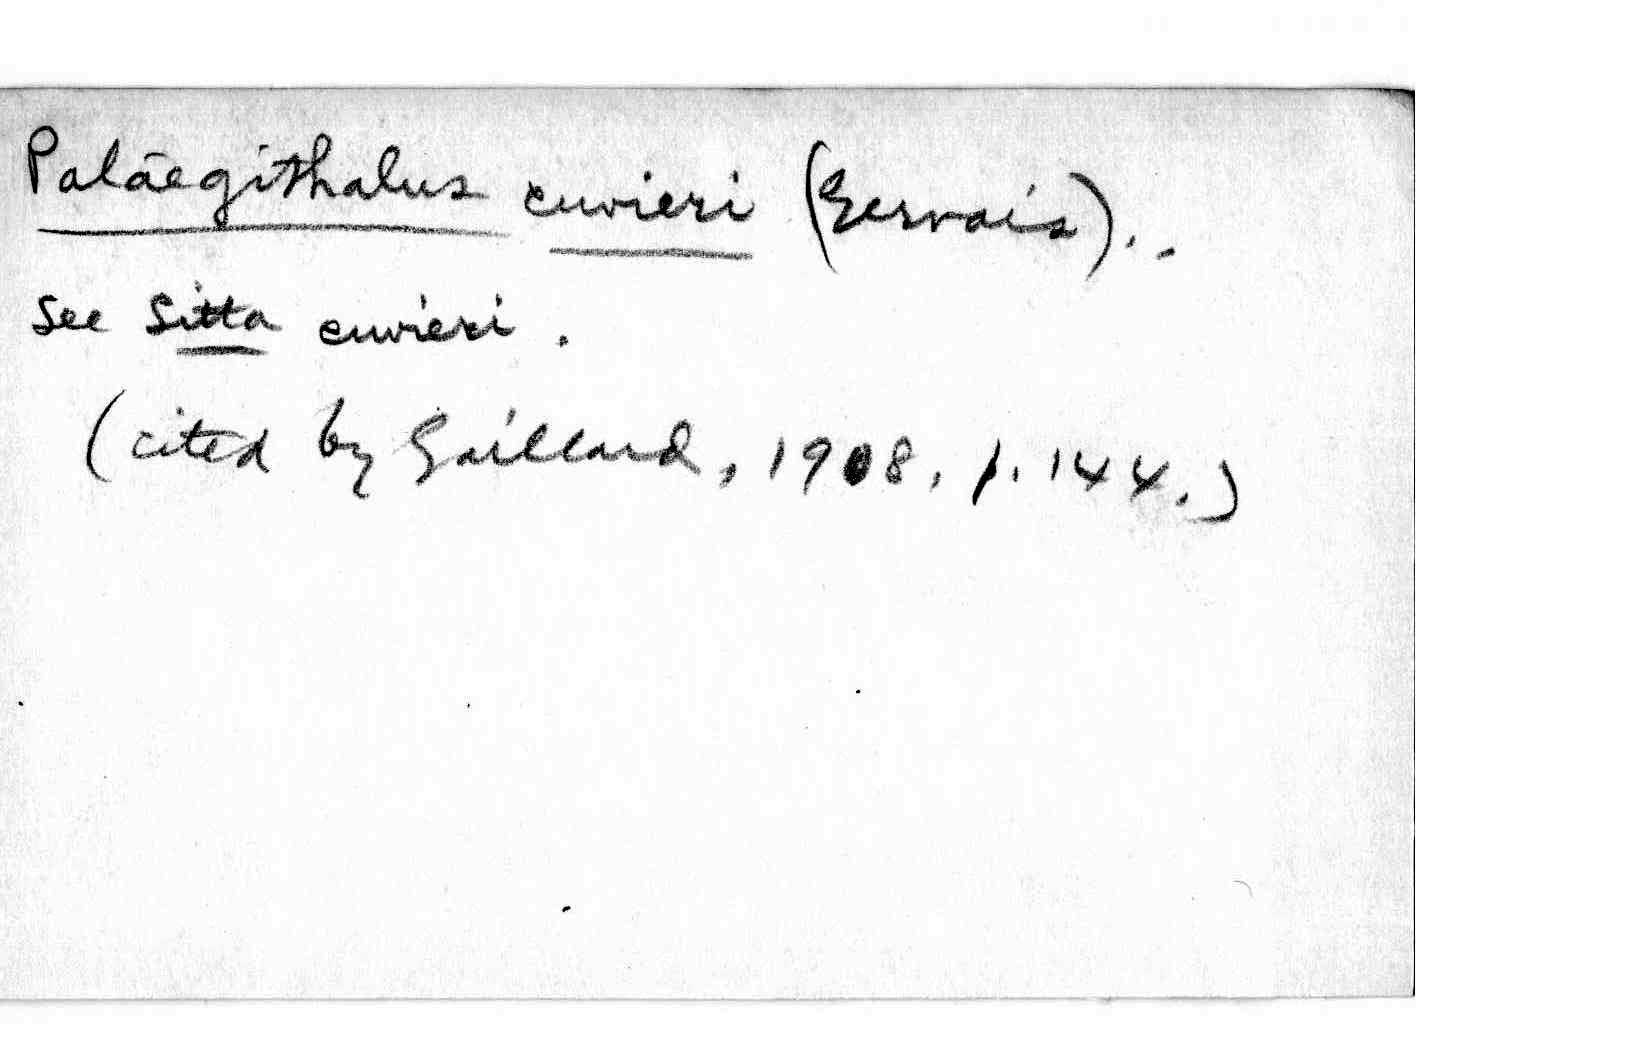 Palaegithalus cuvieri (Gervais)..
See Sitta cuvieri.
(cited by Gaillard, 1908, p. 144.)